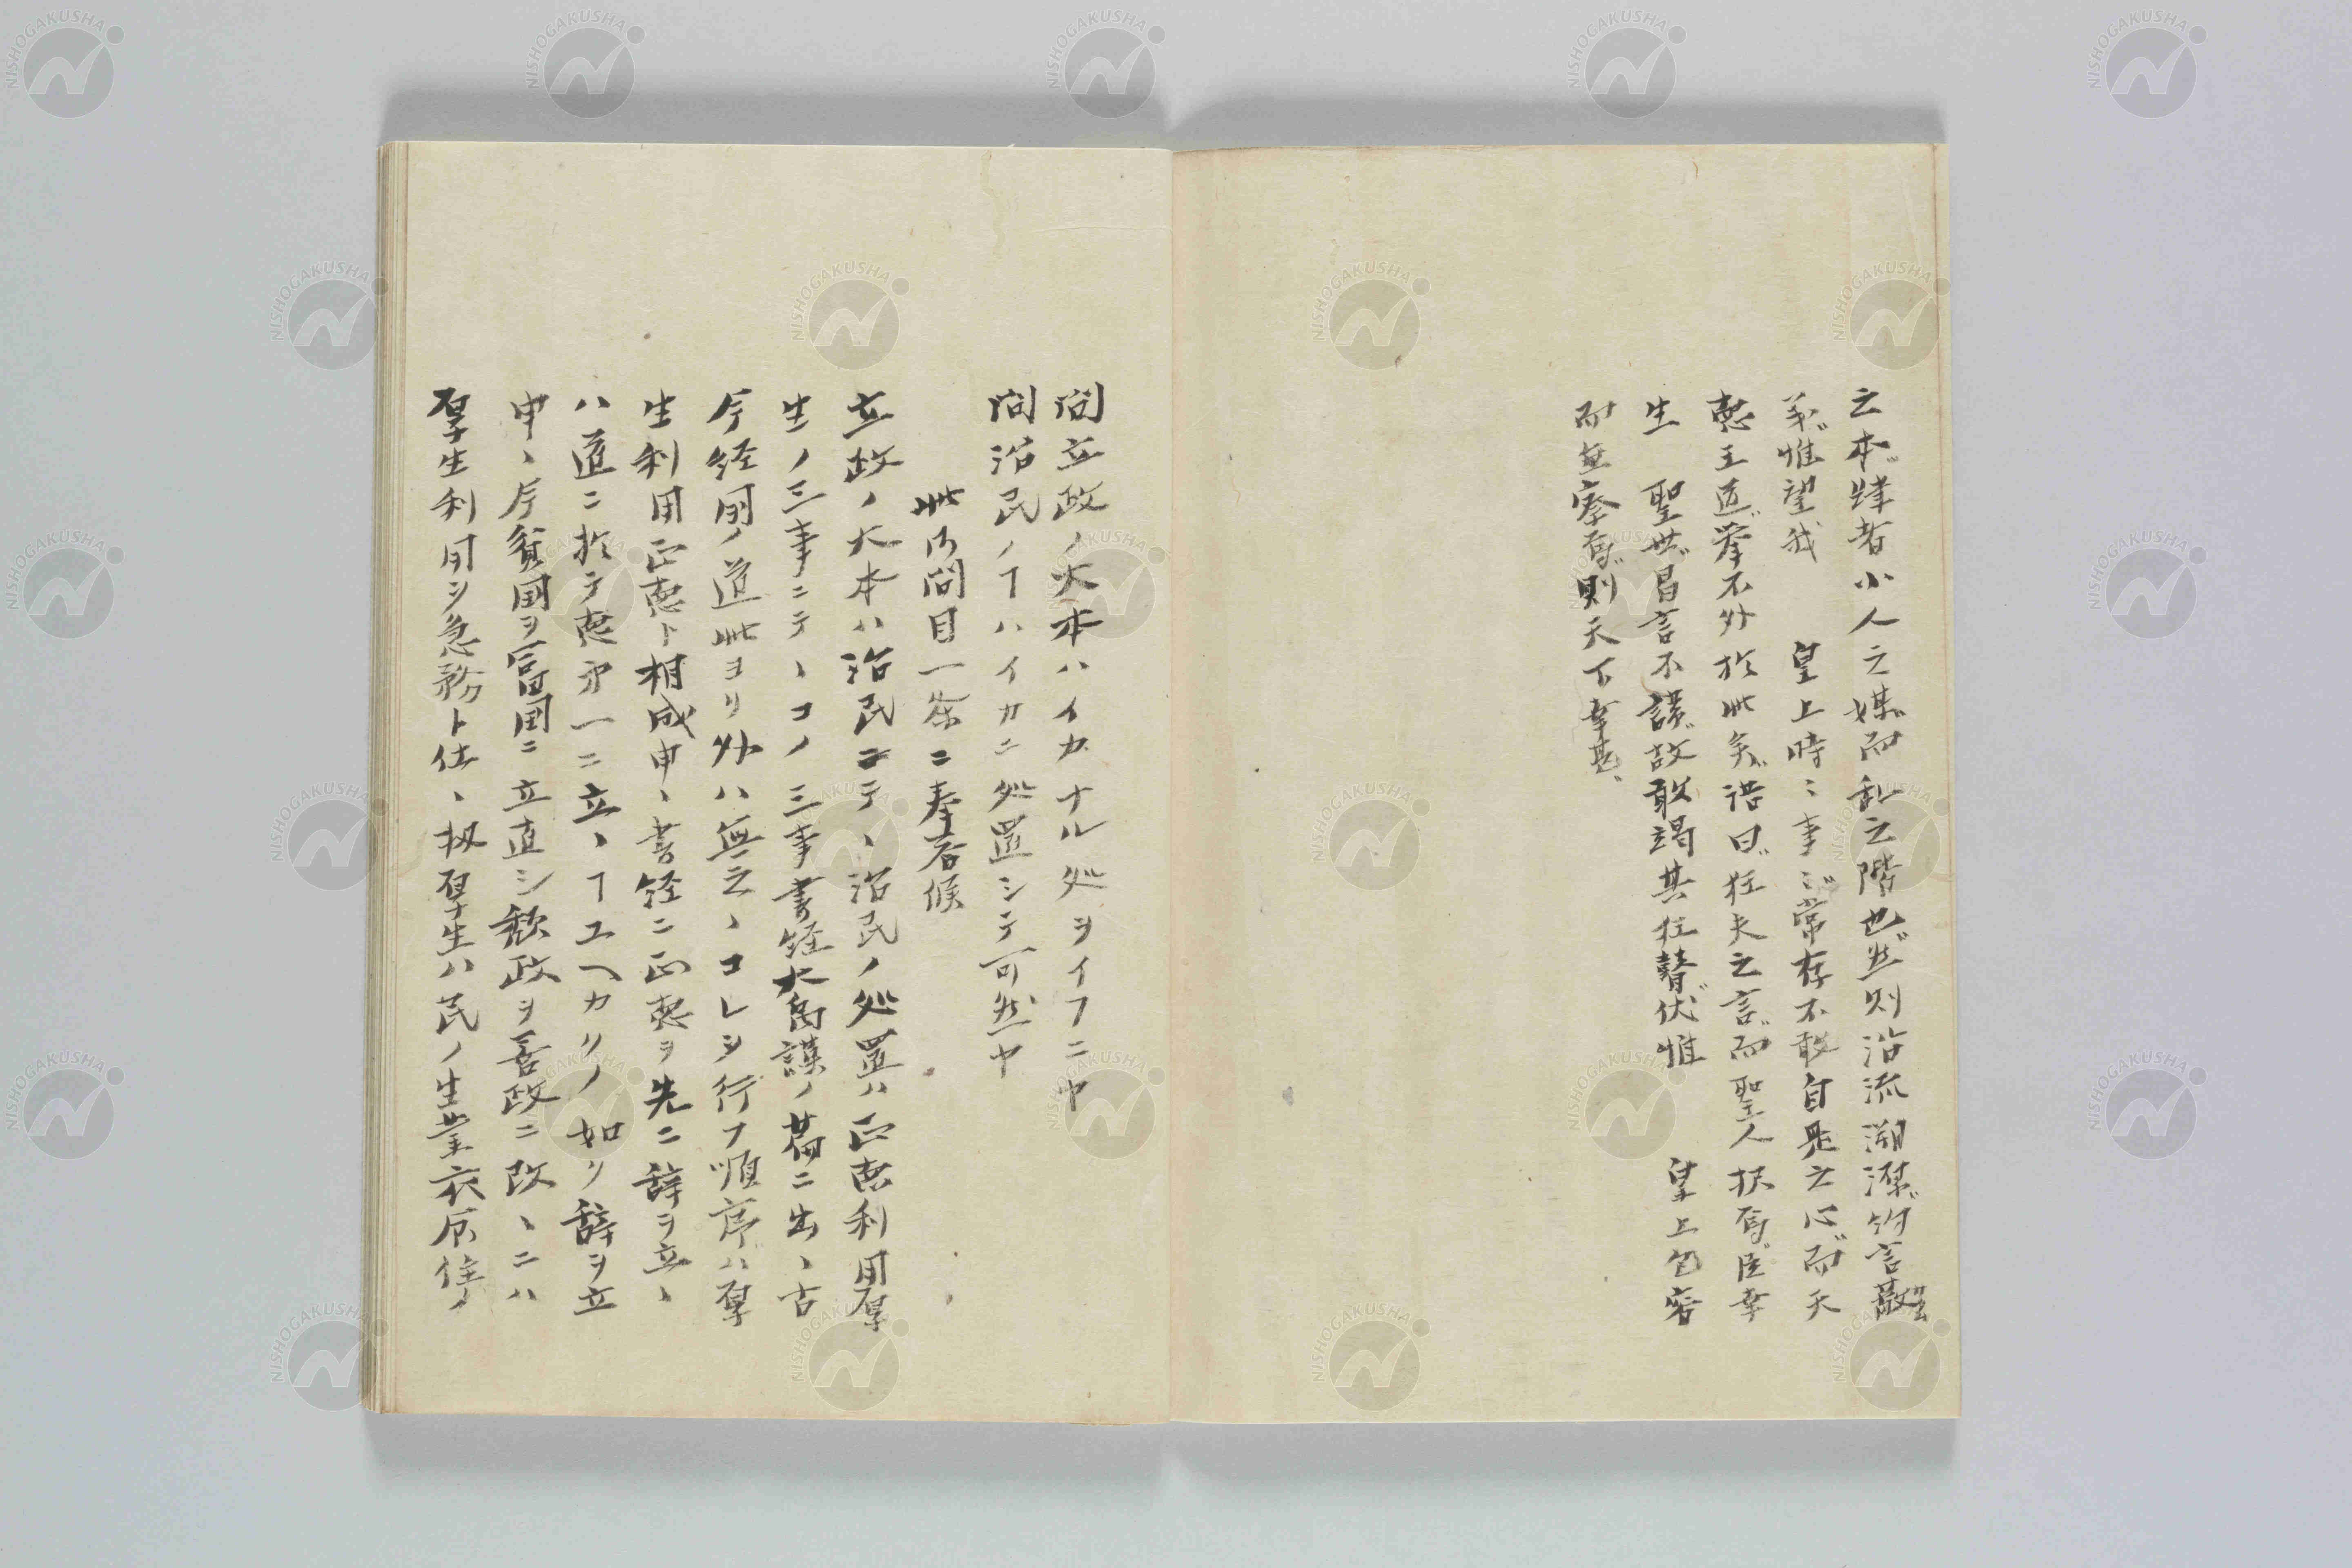 之本肆者小人之媒而乱之階也然則沿流溯源約言蔽
義惟望我　皇上時〻事〻常存不敢自是之心而天
悳王道挙不外於此矣語曰狂夫之言而聖人択焉臣幸
生　聖世昌言不諱故敢竭其狂瞽伏惟　皇上包容
而垂察焉則天下幸甚、
問立政ノ大本ハイカナル処ヲイフニヤ
問治民ノヿハイカニ処置シテ可然ヤ
此内問目一条ニ奉答候
立政ノ大本ハ治民ニテ、治民ノ処置ハ正悳利用厚
生ノ三事ニテ、コノ三事書経大禹謨ノ篇ニ出、古
今経用ノ道此ヨリ外ハ無之、コレヲ行フ順序ハ厚
生利用正悳ト相成申、書経ニ正悳ヲ先ニ辞ヲ立、
ハ道ニ於テ悳第一ニ立、ヿユヘカクノ如ク辞ヲ立
申、今貧国ヲ富国ニ立直シ秕政ヲ善政ニ改、ニハ
厚生利用ヲ急務ト仕、扨厚生ハ民ノ生業衣食住ノ
NISHOGAKUSHA